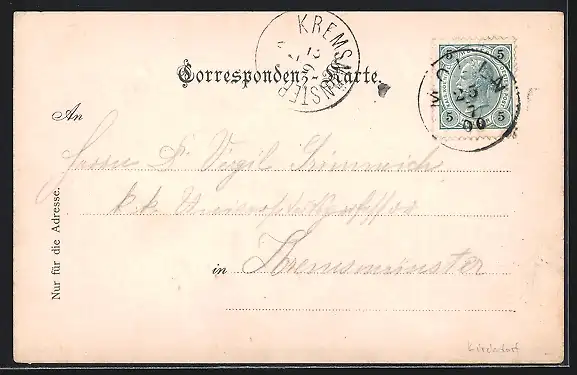 KREMSMÜNSTER
5 5
5 5
MOLLN
25
7
00
Correspondenz-Karte.
An
Herrn Dr Virgil Grimmich
k. k. Universitätsprofessor
in Kremsmünster
Nur für die Adresse.
Kirchdorf